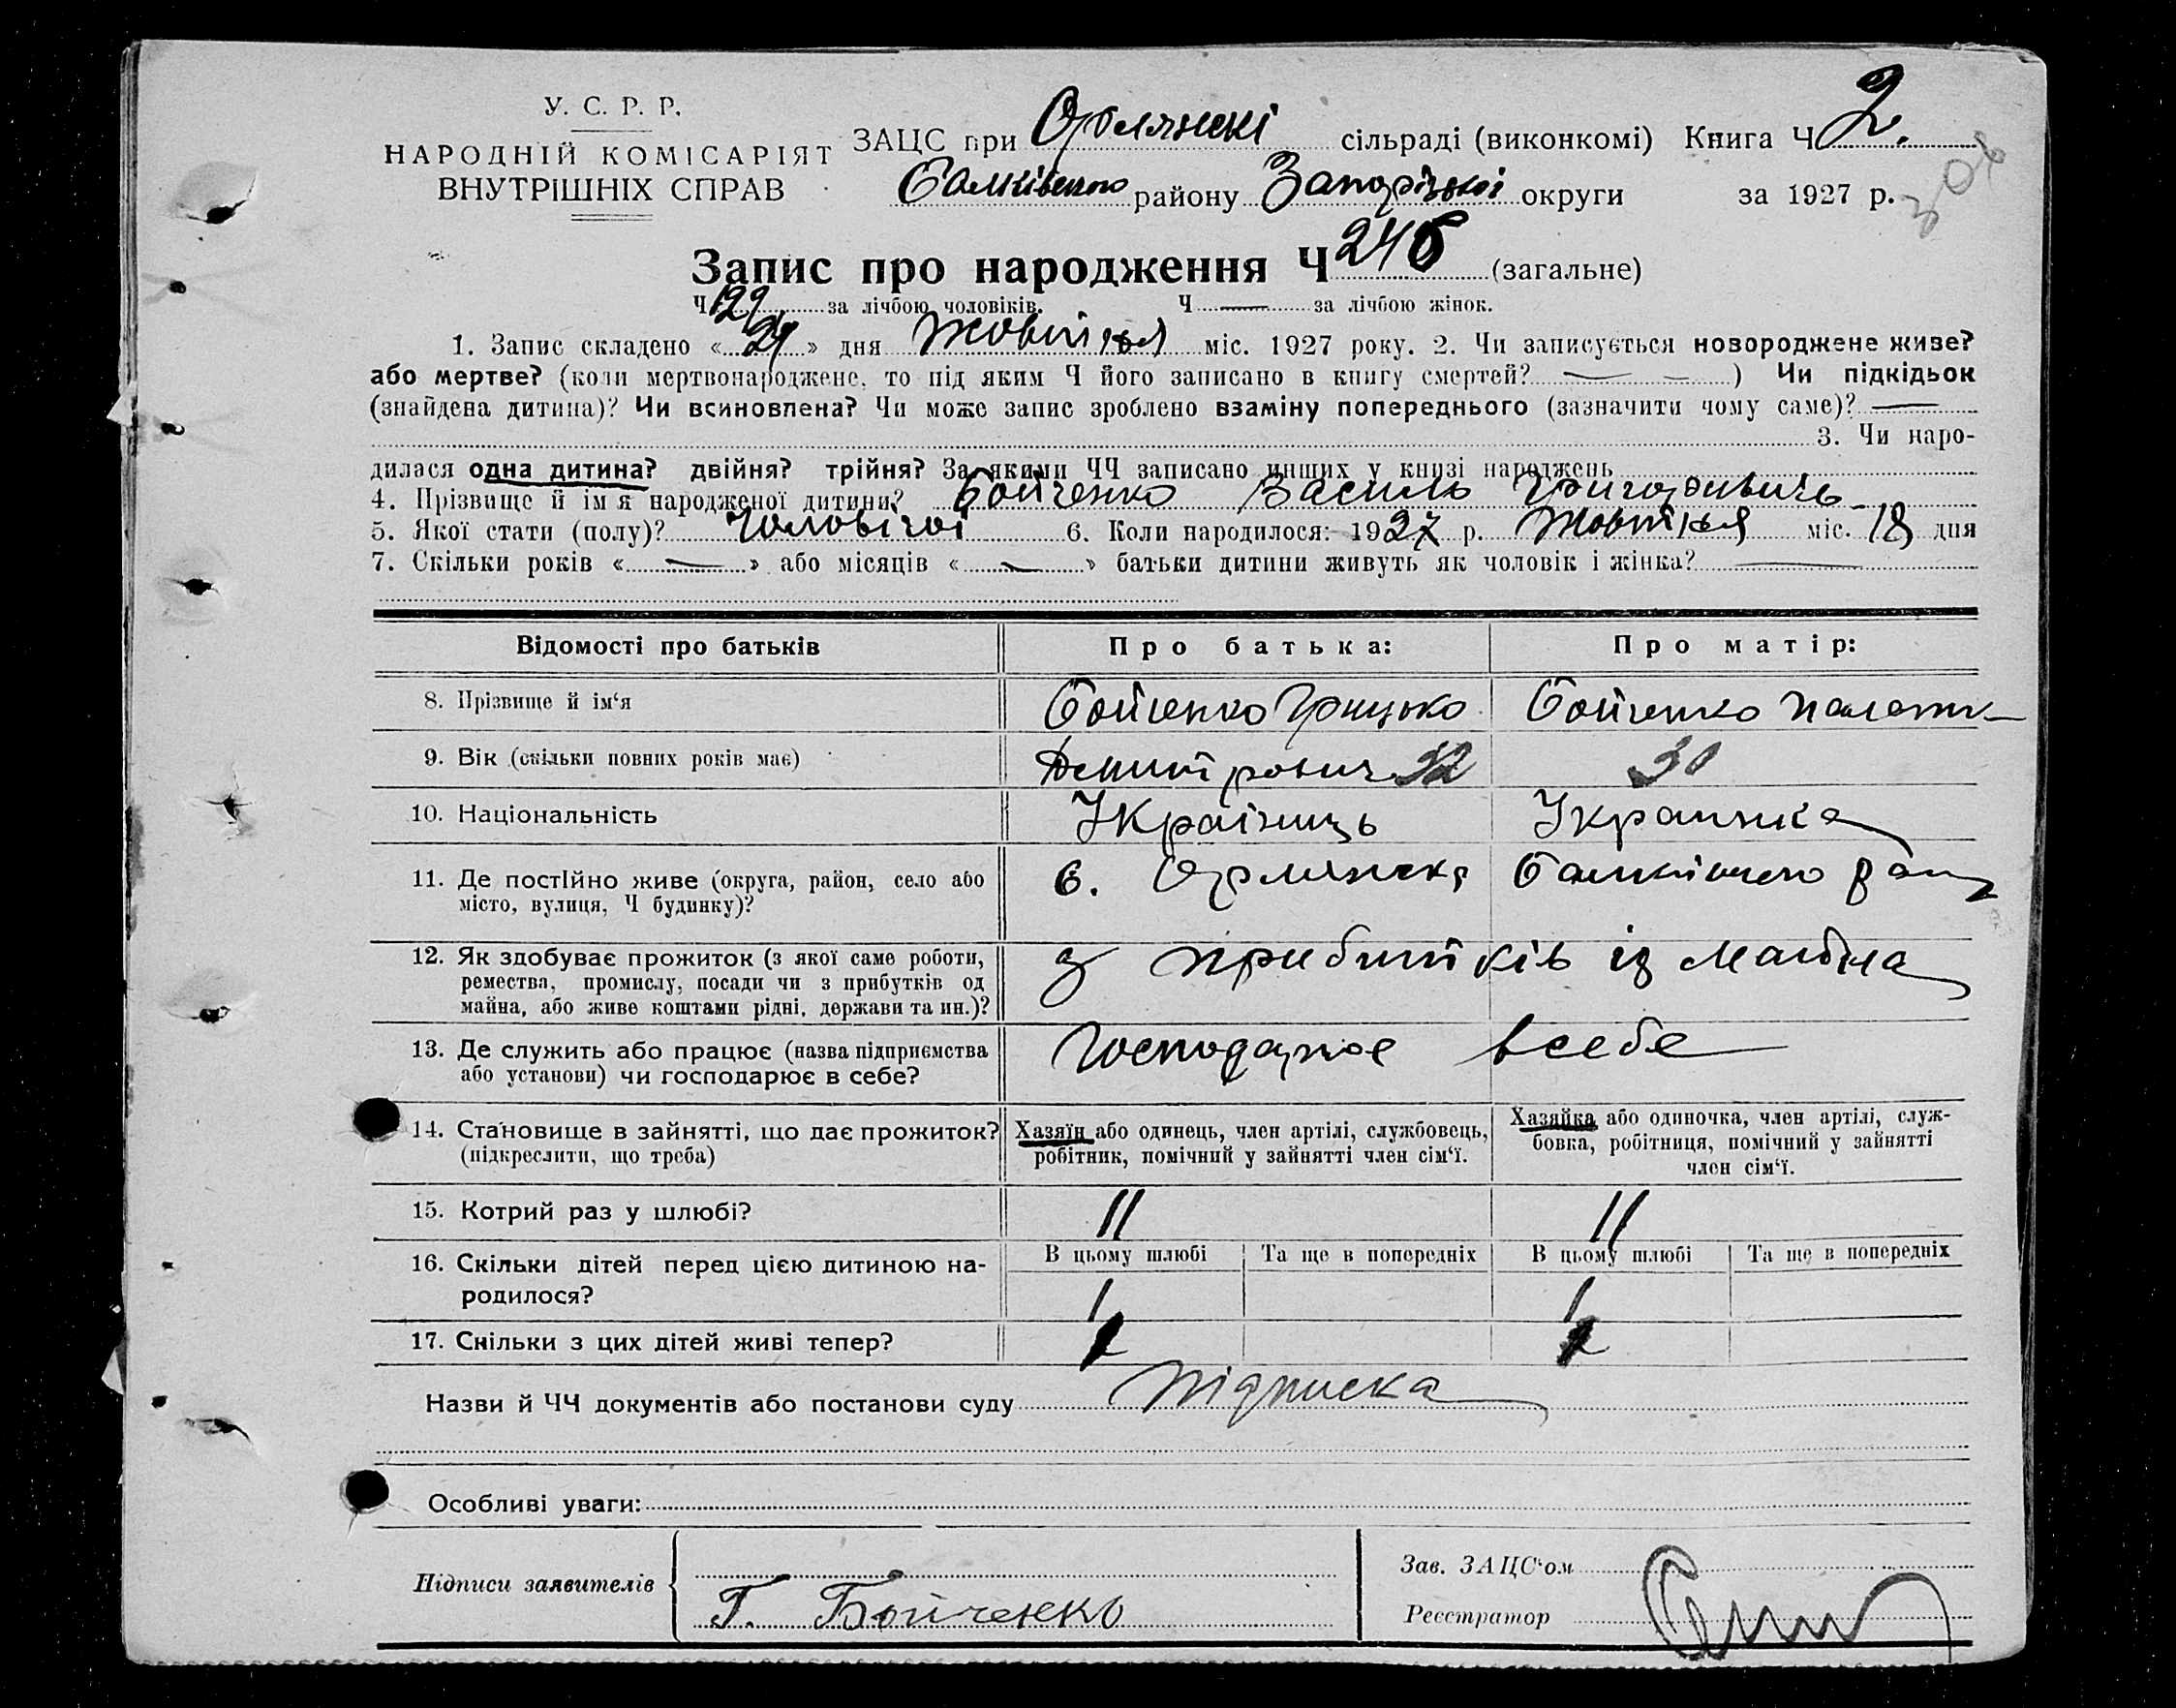 У. С. Р. Р.
НАРОДНІЙ КОМІСАРІЯТ
ВНУТРІШНІХ СПРАВ
ЗАЦС при Орлянскі сільраді (виконкомі) Книга Ч 2.
району Запорізької округи за 1927 р.
Запис про народження Ч 246 (загальне)
Ч 129 за лічбою чоловіків. Ч — за лічбою жінок.
1. Запис складено «24» дня Жовтня міс. 1927 року. 2. Чи записується новороджене живе?
або мертве? (коли мертвонароджене, то під яким Ч його записано в книгу смертей? — —) Чи підкідьок
(знайдена дитина)? Чи всиновлена? Чи може запис зроблено взаміну попереднього (зазначити чому саме)? —
3. Чи наро-
дилася одна дитина? двійня? трійня? За якими ЧЧ записано инших у книзі народжень
4. Прізвище й ім'я народженої дитини? Бойченко Василь Григорович
5. Якої стати (полу)? Чоловічої 6. Коли народилося: 1927 р. Жовтня міс. 18 дня
7. Скільки років «—» або місяців «—» батьки дитини живуть як чоловік і жінка? —
Відомості про батьків Про батька: Про матір:
8. Прізвище й ім'я Бойченко Грицько Бойченко
9. Вік (скільки повних років має) Дмитрович 32 30
10. Національність Українець Украинка
11. Де постійно живе (округа, район, село або
місто, вулиця, Ч будинку)? с. Орлянск
12. Як здобуває прожиток (з якої саме роботи,
ремества, промислу, посади чи з прибутків од
майна, або живе коштами рідні, держави та ин.)? з прибитків із
13. Де служить або працює (назва підприємства
або установи) чи господарює в себе? Господарює всебе
14. Становище в зайнятті, що дає прожиток?
(підкреслити, що треба)
Хазяїн або одинець, член артілі, службовець,
робітник, помічний у зайнятті член сім'ї.
Хазяйка або одиночка, член артілі, служ-
бовка, робітниця, помічний у зайнятті
член сім'ї.
15. Котрий раз у шлюбі? II II
16. Скільки дітей перед цією дитиною на-
родилося?
В цьому шлюбі Та ще в попередніх В цьому шлюбі Та ще в попередніх
1 1
17. Скільки з цих дітей живі тепер?
Назви й ЧЧ документів або постанови суду Підписка
Особливі уваги:
Підписи заявителів Г. Бойченко
Зав. ЗАЦС'ом
Реєстратор